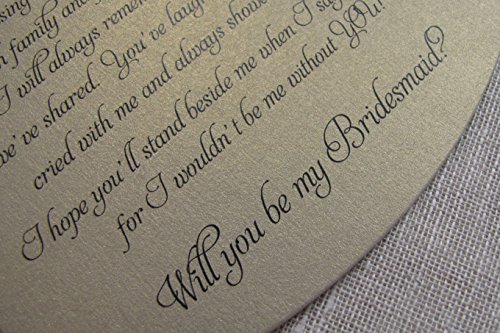 family and
I will always
shared. You've
cried with me and always
I hope you'll stand beside me when I say
for I wouldn't be me without YOU!
Will you be my Bridesmaid?